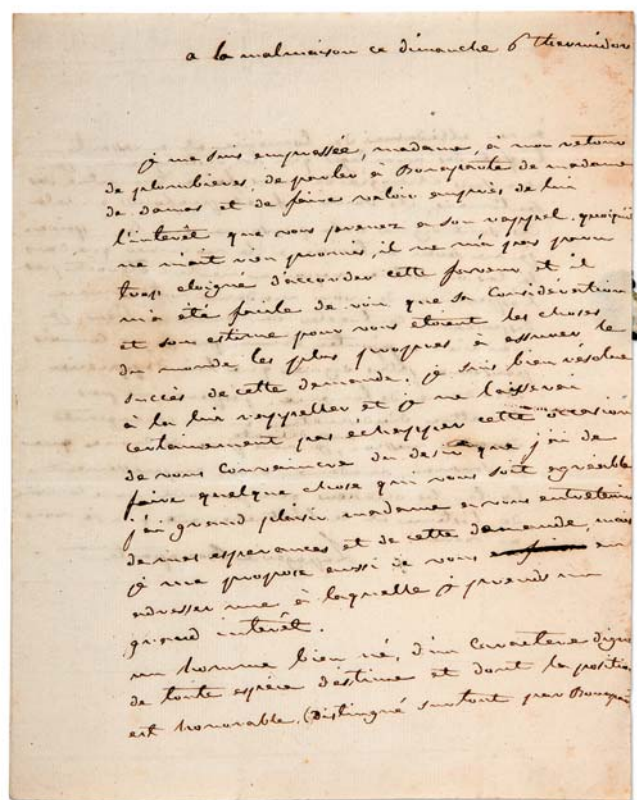 a la malmaison ce dimanche 6 thermidor
je me suis empressée, madame, à mon retour
de plombieres, de parler à Bonaparte de madame
de damas et de faire valoir auprès de lui
l'interêt que vous prenez a son rappel. quoiqu'il
ne m'ait rien promis, il ne m'a pas paru
trop eloigné d'accorder cette faveur et il
m'a été facile de voir que sa considération
et son estime pour vous etoient les choses
du monde les plus propres à assurer le
succès de cette demande. je suis bien résolue
à la lui rappeller et je ne laisserai
certainement pas échapper cette occasion
de vous convaincre du desir que j'ai de
faire quelque chose qui vous soit agréable
j'ai grand plaisir madame a vous entretenir
de mes esperances et de cette demande, mais
je me propose aussi de vous en
adresser une à laquelle je prends un
grand interêt.
un homme bien né, d'un caractere digne
de toute espèce d'estime et dont la position
est honorable, (distingué surtout par Bonaparte